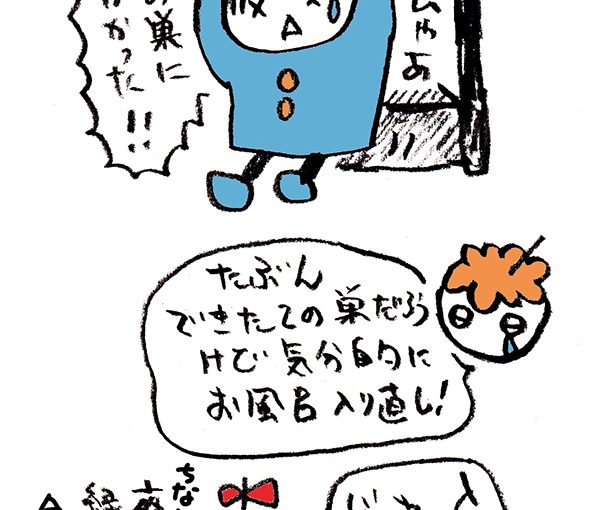 ひゃあ
の巣に
かかった!!
たぶん
できたての巣だろう
けど気分的に
お風呂入り直し!